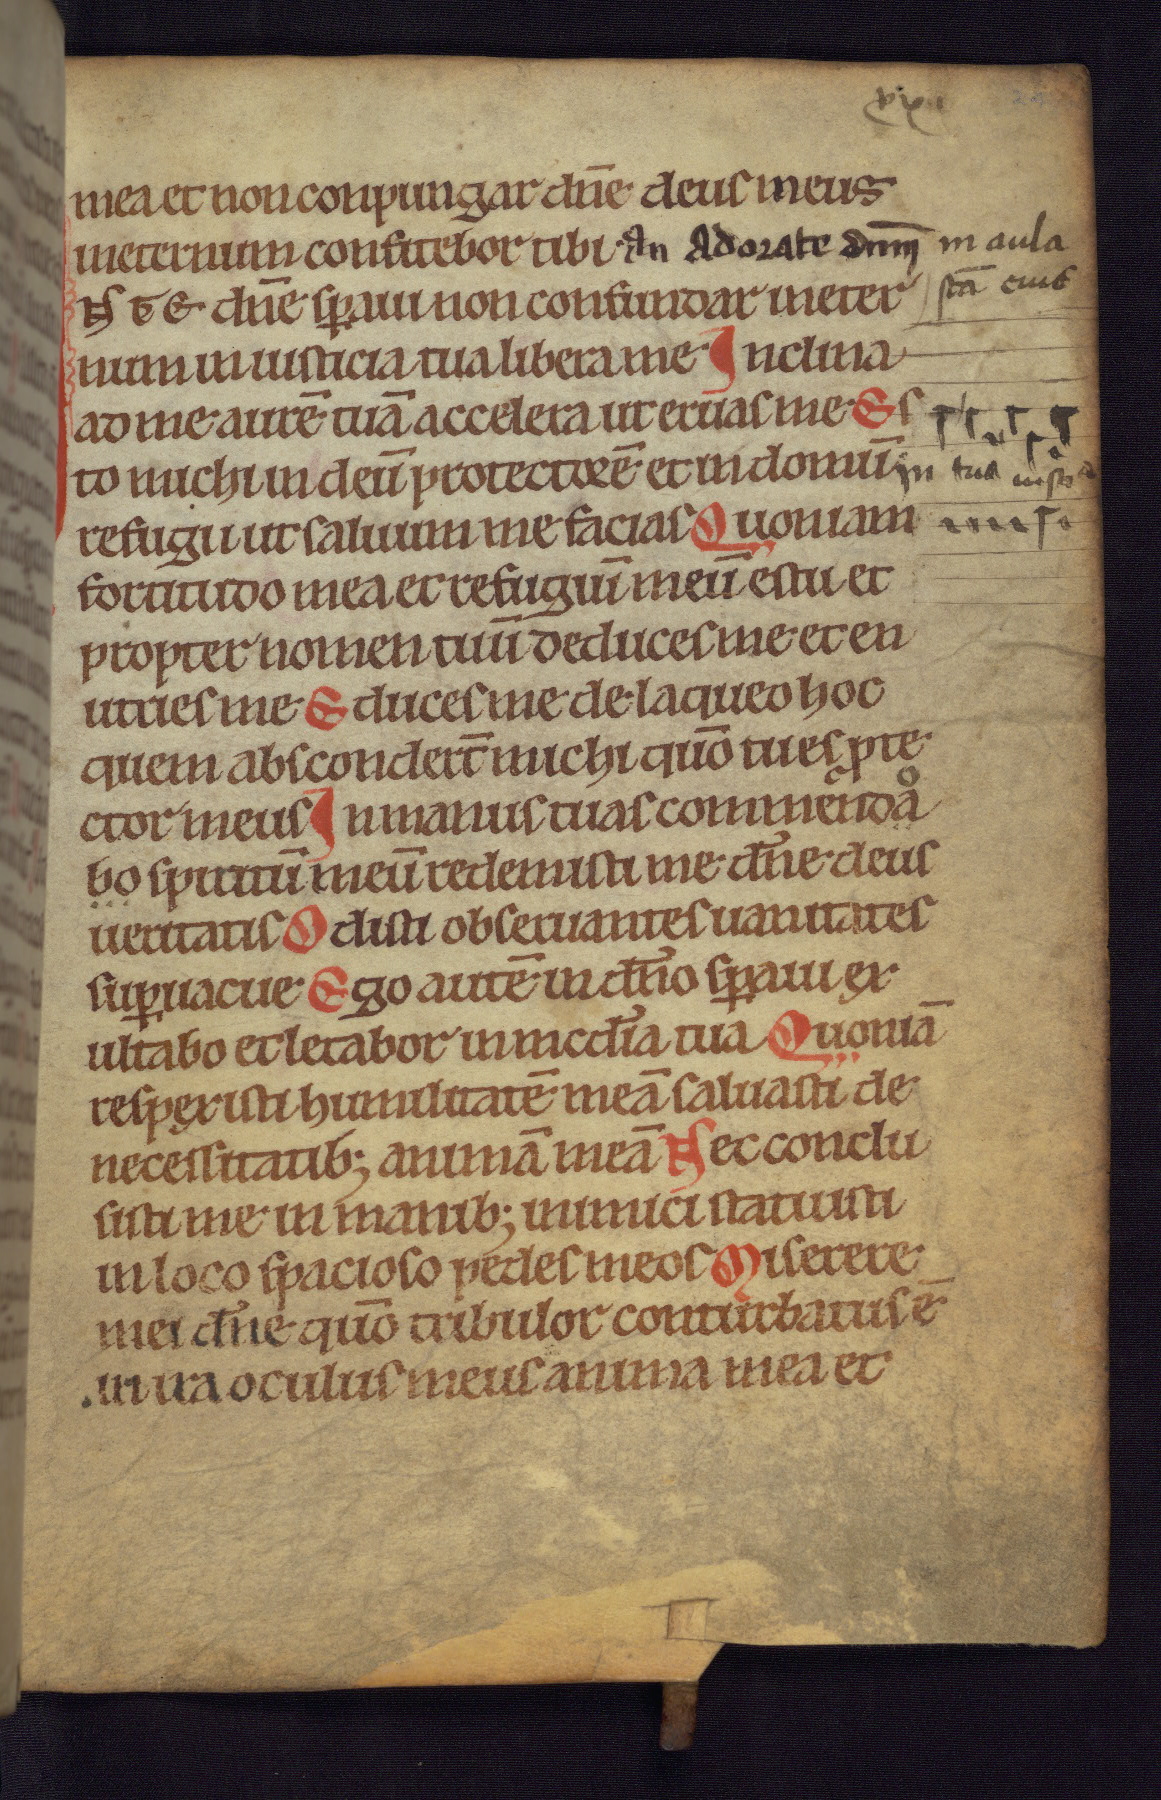 mea et non conpungar dn̄e deus meus
ineternum confitebor tibi An Adorate dnm̄ in aula
N TE dn̄e sp̄aui non confundar ineter scā eius
num in iusticia tua libera me Inclina
ad me aurē tuā accelera ut eruas me Es
to michi in deū protectorē et in domū in tua iusti
refugii ut saluum me facias Quoniam
fortitudo mea et refugiū meū es tu et
propter nomen tuū deduces me et en
utries me Educes me de laqueo hoc
quem abscondert̄ michi quō tu es pte
ctor meus In manus tuas commēnda
bo spiritū meū redemisti me dn̄e deus
ueritatis Odisti obseruantes uanitates
sup̄uacue Ego autē in dn̄o sp̄aui ex
ultabo et letabor in mcd̄ia tua Quoniā
respexisti humilitatē meā saluasti de
necessitatib; animā meā Nec conclu
sisti me in manib; inimici statuisti
in loco spacioso pedes meos Miserere
mei dn̄e quō tribulor conturbatus ē
in ira oculus meus anima mea et